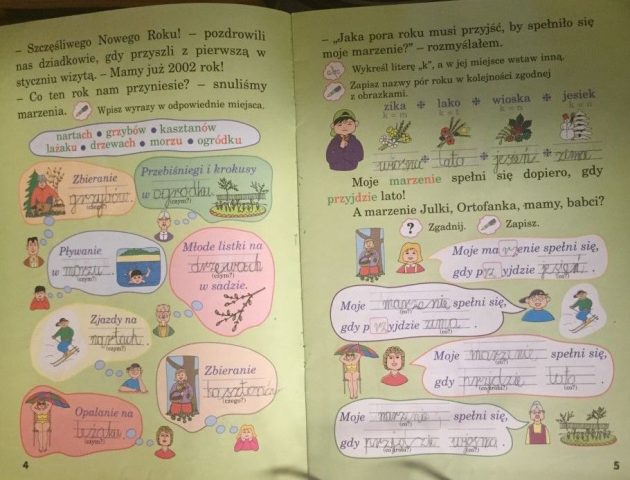 – Szczęśliwego Nowego Roku! – pozdrowili
nas dziadkowie, gdy przyszli z pierwszą w
styczniu wizytą. – Mamy już 2002 rok!
– Co ten rok nam przyniesie? – snuliśmy
marzenia.
Wpisz wyrazy w odpowiednie miejsca.
nartach • grzybów • kasztanów
lażaku • drzewach • morzu • ogródku
Zbieranie
grzybów.
(czego?)
Przebiśniegi i krokusy
w ogródku.
(czym?)
Pływanie
w morzu.
(czym?)
Młode listki na
drzewach
(czym?)
w sadzie.
Zjazdy na
nartach.
(czym?)
Zbieranie
kasztanów
(czego?)
Opalanie na
leżaku.
(czym?)
4
– „Jaka pora roku musi przyjść, by spełniło się
moje marzenie?” – rozmyślałem.
Wykreśl literę „k”, a w jej miejsce wstaw inną.
Zapisz nazwy pór roku w kolejności zgodnej
z obrazkami.
zika lako wioska jesiek
k = m k = t k = n k = ń
wiosna lato jesień zima
Moje marzenie spełni się dopiero, gdy
przyjdzie lato!
A marzenie Julki, Ortofanka, mamy, babci?
? Zgadnij. Zapisz.
Moje marzenie spełni się,
gdy przyjdzie jesień.
(co?)
Moje marzenie spełni się,
(co?)
gdy przyjdzie zima.
(co?)
Moje marzenie spełni się,
(co?)
gdy przyjdzie lato.
(co zrobi?) (co?)
Moje marzenie spełni się,
(co?)
gdy przyjdzie wiosna.
(co zrobi?) (co?)
5